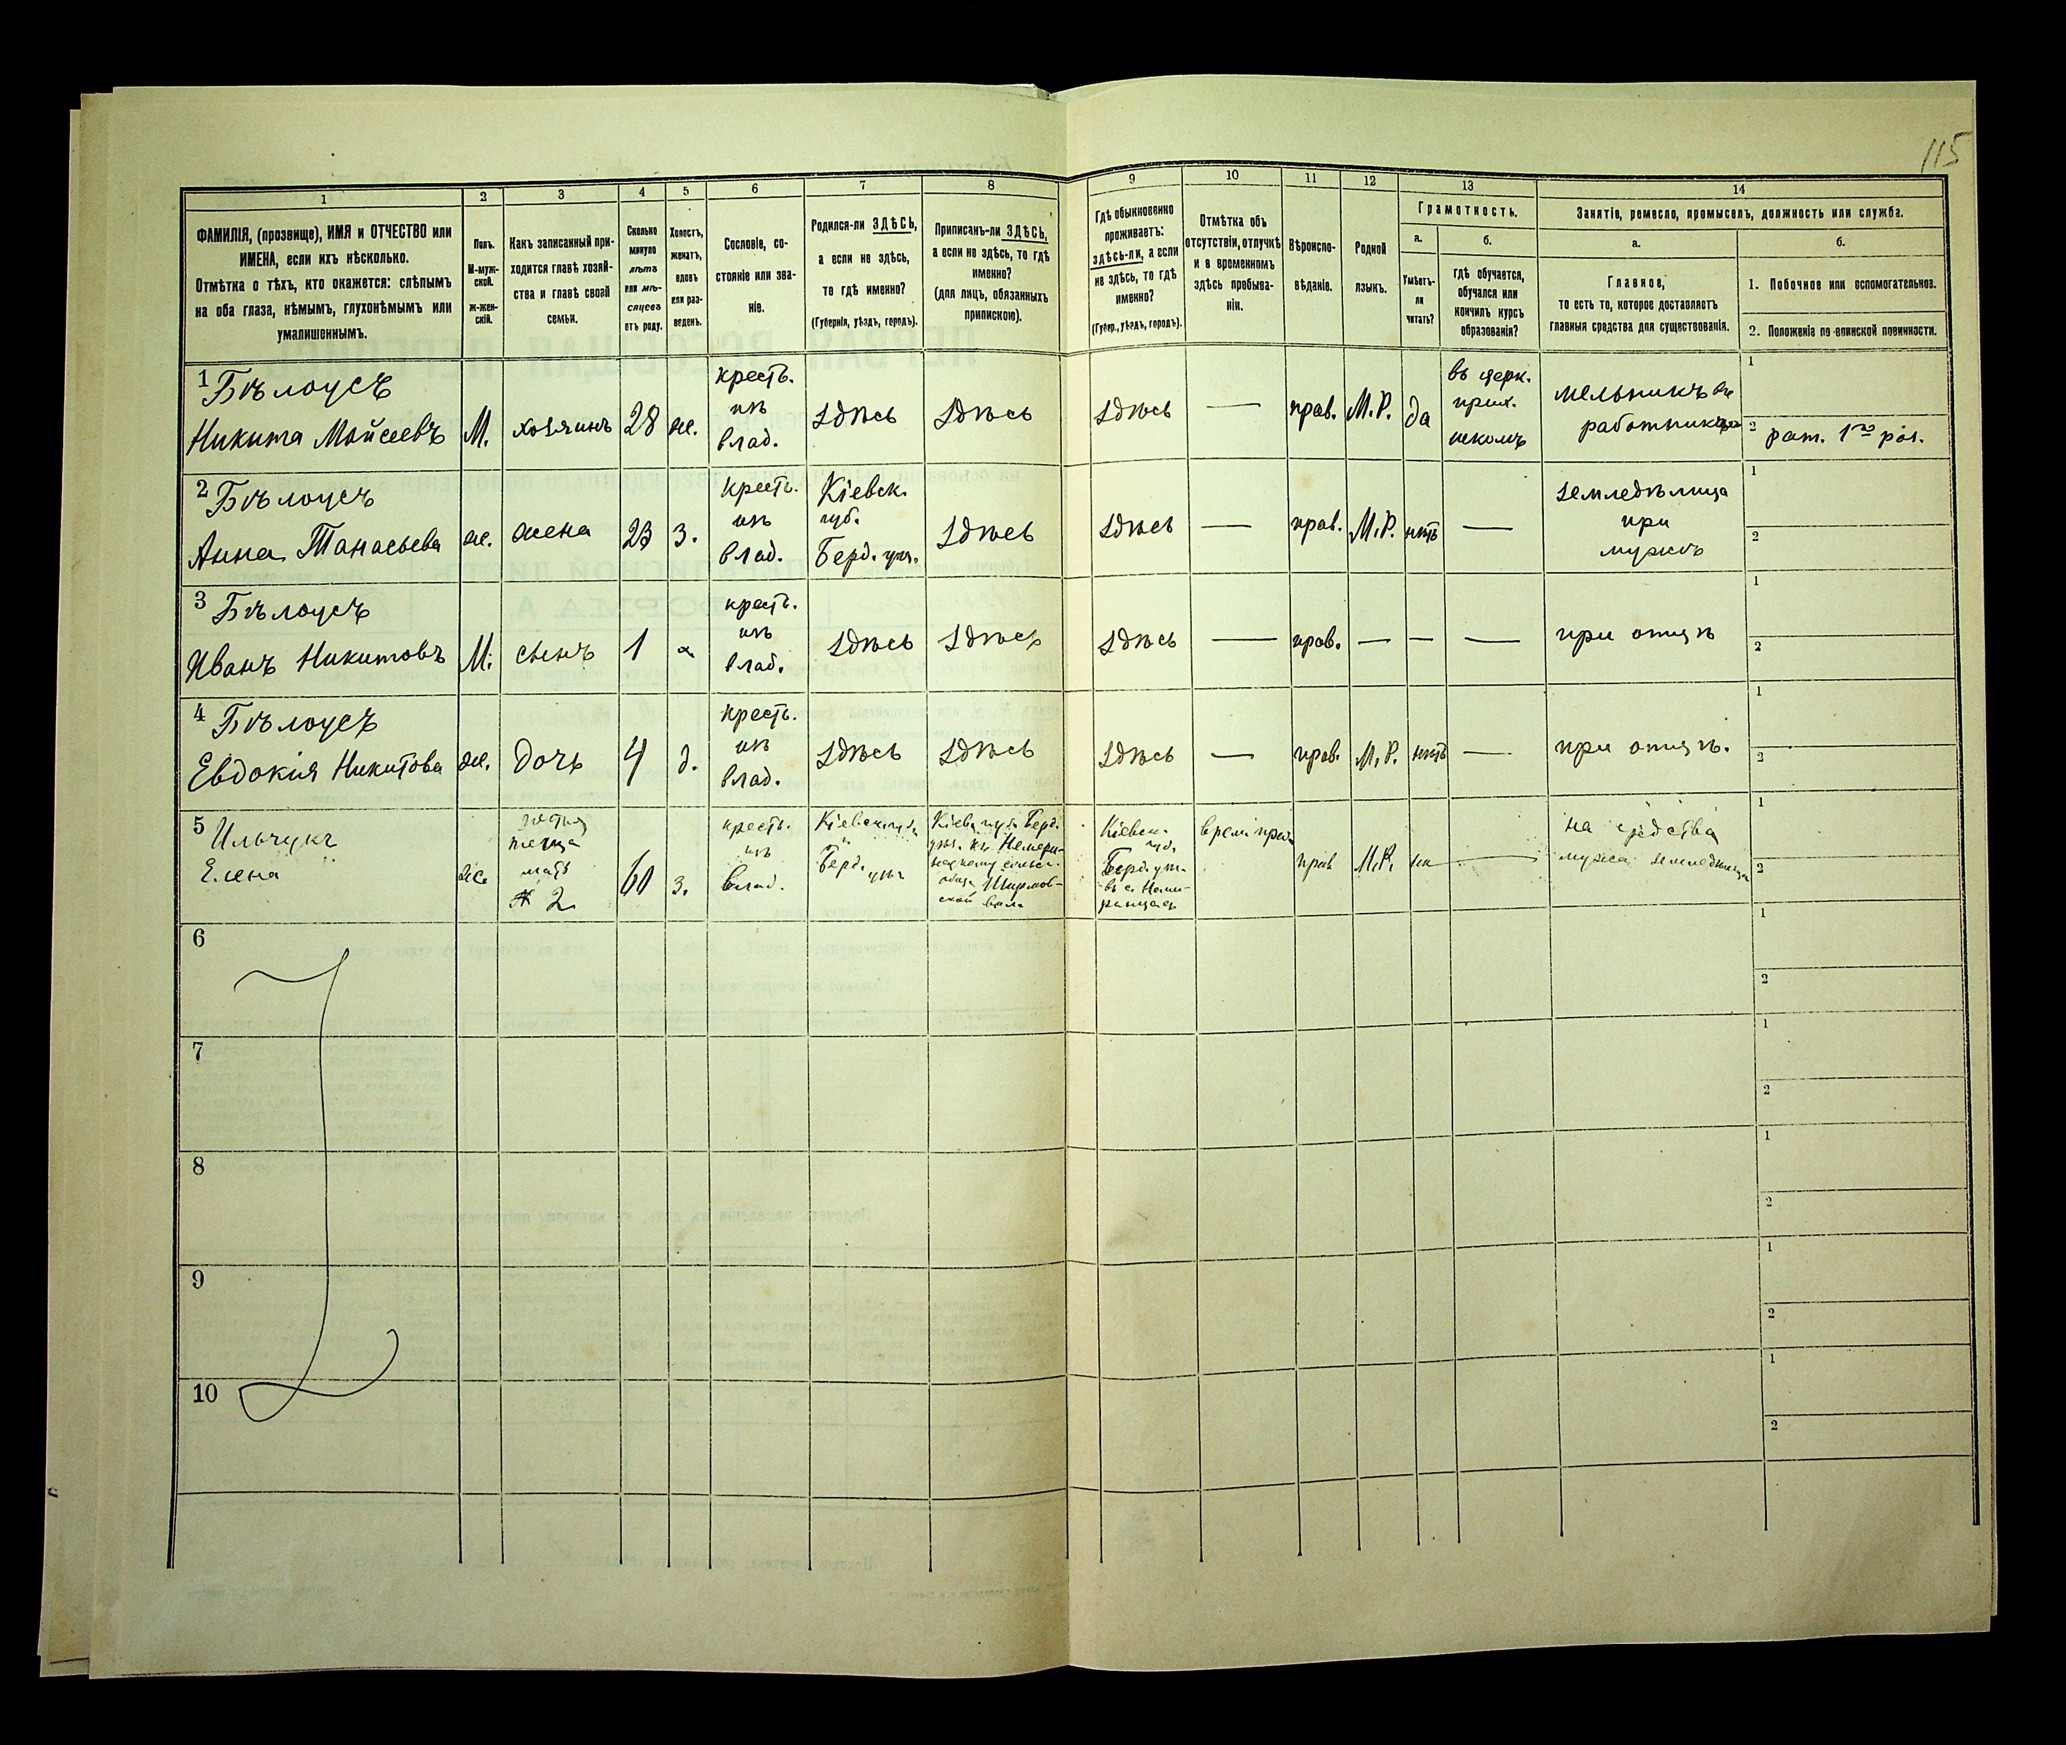 115
1 2 3 4 5 6 7 8 9 10 11 12 13 14
ФАМИЛІЯ, (прозвище), ИМЯ и ОТЧЕСТВО или
ИМЕНА, если ихъ нѣсколько.
Отмѣтка о тѣхъ, кто окажется: слѣпымъ
на оба глаза, нѣмымъ, глухонѣмымъ или
умалишоннымъ.
Полъ.
М-муж-
ской.
Ж-жен-
скій.
Какъ записанный при-
ходится главѣ хозяй-
ства и главѣ своей
семьи.
Сколько
минуло
лѣтъ
или мѣ-
сяцевъ
отъ роду.
Холостъ,
женатъ,
вдовъ
или раз-
веденъ.
Сословіе, со-
стояніе или зва-
ніе.
Родился-ли ЗДѢСЬ,
а если не здѣсь,
то гдѣ именно?
(Губернія, уѣздъ, городъ).
Приписанъ-ли ЗДѢСЬ,
а если не здѣсь, то гдѣ
именно?
(для лицъ, обязанныхъ
припискою).
Гдѣ обыкновенно
проживаетъ:
здѣсь-ли, а если
не здѣсь, то гдѣ
именно?
(Губер., уѣздъ, городъ).
Отмѣтка объ
отсутствіи, отлучкѣ
и о временномъ
здѣсь пребыва-
ніи.
Вѣроиспо-
вѣданіе.
Родной
языкъ.
Грамотность.
а.
Умѣетъ-
ли
читать?
б.
гдѣ обучается,
обучался или
кончилъ курсъ
образованія?
Занятіе, ремесло, промыселъ, должность или служба.
а.
Главное,
то есть то, которое доставляетъ
главныя средства для существованія.
б.
1. Побочное или вспомогательное.
2. Положеніе по воинской повинности.
1 Бѣлоусъ
Никита Мойсеевъ
М.
хозяинъ
28
же.
крест.
изъ
влад.
здѣсь
здѣсь
здѣсь
—
прав.
М.Р.
да
въ церк.
прих.
школѣ
мельникъ
работникъ
1
2 рат. 1го раз.
2 Бѣлоусъ
Анна Танасьева
же.
жена
23
з.
крест.
изъ
влад.
Кіевск.
губ.
Берд. уѣз.
здѣсь
здѣсь
—
прав.
М.Р.
нѣтъ
—
земледѣлица
при
мужѣ
1
2
3 Бѣлоусъ
Иванъ Никитовъ
М.
сынъ
1
х
крест.
изъ
влад.
здѣсь
здѣсь
здѣсь
—
прав.
—
—
—
при отцѣ
1
2
4 Бѣлоусъ
Евдокія Никитова
же.
дочь
4
д.
крест.
изъ
влад.
здѣсь
здѣсь
здѣсь
—
прав.
М.Р.
нѣтъ
—
при отцѣ.
1
2
5 Ильчукъ
Елена
же.
теща
мать
№ 2
60
з.
крест.
изъ
влад.
Кіевск. губ.
Берд.
уѣз.
Кіев. губ. Берд.
уѣз.
Кіевск.
губ.
Берд. уѣз.
прав.
М.Р.
—
на средства
мужа земледѣльца
1
2
6
1
2
7
1
2
8
1
2
9
1
2
10
1
2